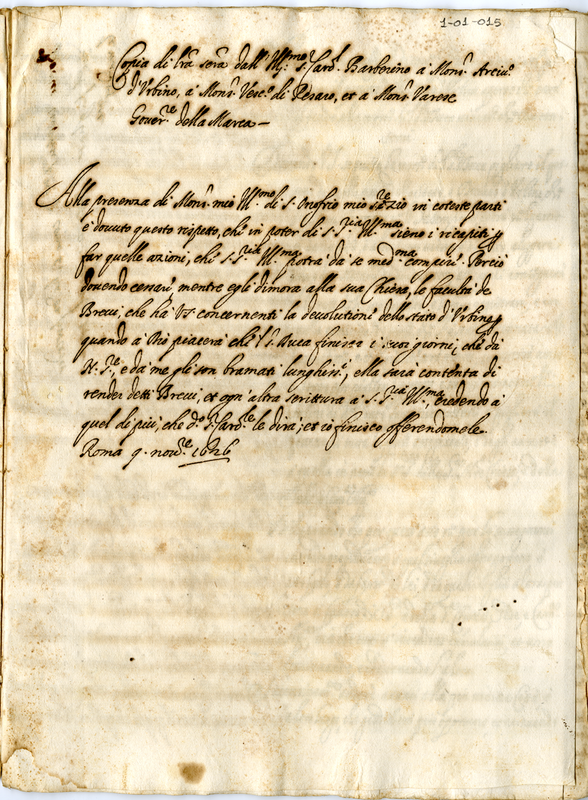 1-01-015
Copia di lra scra dall' Ill.mo S.r Card. Barberino à Mons.r Arciu.o
d'Vrbino, à Mons.r Vesc.o di Pesaro, et à Mons.r Varese
Gouer.re della Marca –
Alla presenza di Mons.r mio Ill.mo di S. Onofrio mio S.re e Zio in coteste parti
è douuto questo rispetto, che in poter di S. S.ria Ill.ma sieno i ricapiti p
far quelle azioni, che S. S.ria Ill.ma potrà da se med.ma compire. Perciò
douendo cessare mentre egli dimora alla sua Chiesa, le facultà de
Breui, che hà VS concernenti la deuolutione dello stato d'Vrbino p
quando à Dio piacerà che 'l S. Duca finisca i suoi giorni, che da
N. S.re, e da me gli son bramati lunghiss.i, ella sarà contenta di
render detti Breui, et ogn' altra scrittura à S. S.ria Ill.ma, credendo à
quel di più, che d.o S. Card.le le dirà; et io finisco offerendomele.
Roma 9. nou.re 1626